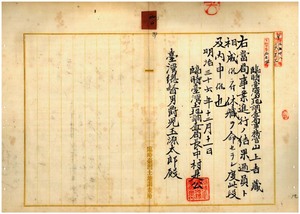 臨時臺灣土地調查局技手山上吉藏
右當局事業進行ノ結果過員ト
相成候ニ付休職ヲ命セラレ度此段
及内申候也
明治三十六年十二月十一日
臨時臺灣土地調查局長中村是公
臺灣總督男爵兒玉源太郎殿